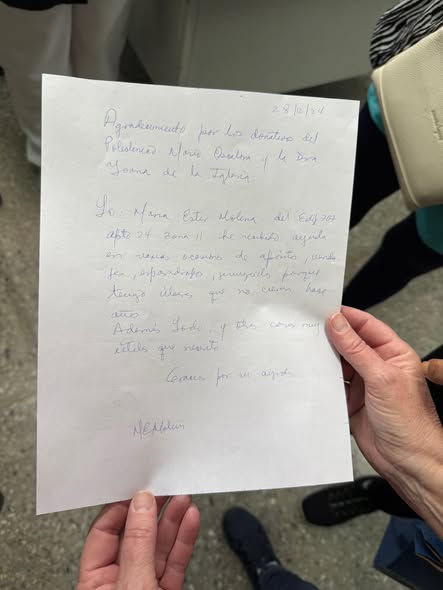 28/12/24
Agradecimiento por los donativos del
Policlínico Mario Escalona y la Dra
Joana de la Iglesia
Yo María Ester Molena del Edif 707
apto 24 Zona 11 he recibido ayuda
en varias ocasiones de apósitos, venda
jes, esparadrapo, jeringuilla porque
tengo úlceras que no cierran hace
años
Además Yodo, y otras cosas muy
útiles que necesito
Gracias por su ayuda
MEMolena